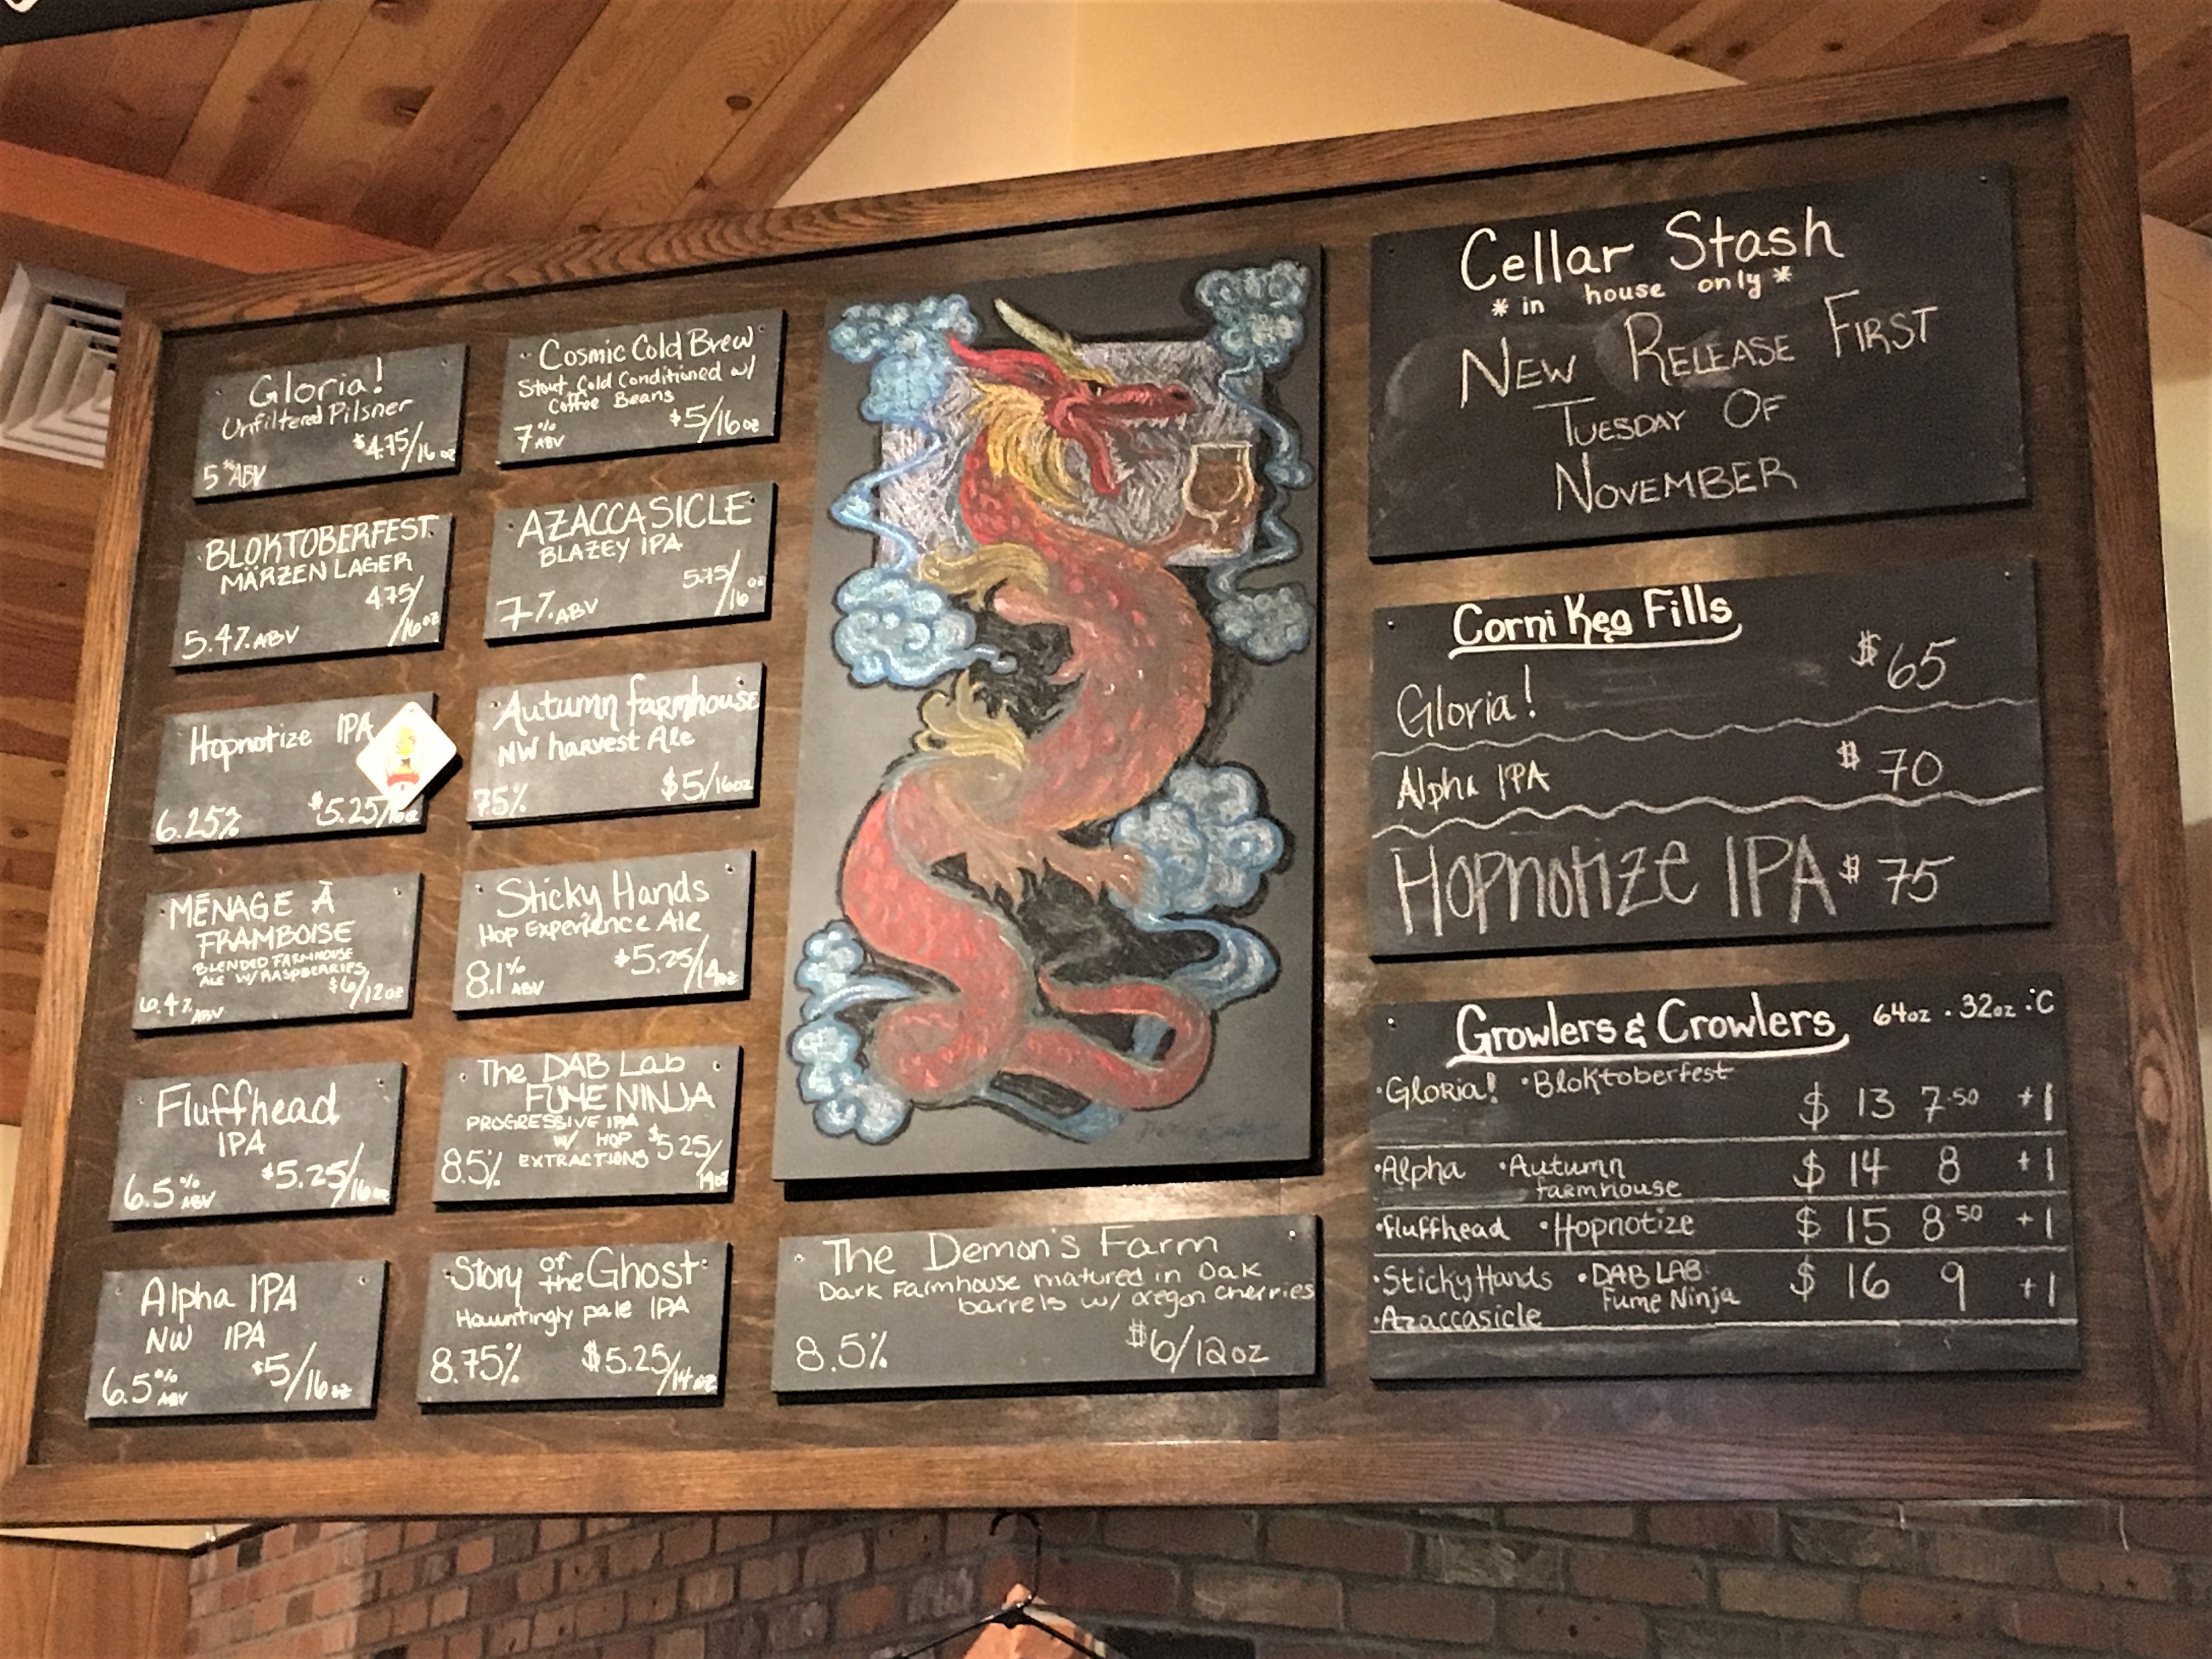 Gloria!
Unfiltered Pilsner
5% ABV $4.75/16oz
BLOKTOBERFEST
MÄRZEN LAGER
5.4% ABV 4.75/16oz
Hopnotize IPA
6.25% $5.25/16oz
MÉNAGE À
FRAMBOISE
BLENDED FARMHOUSE
ALE W/ RASPBERRIES
6.4% ABV $6/12oz
Fluffhead
IPA
6.5% ABV $5.25/16oz
Alpha IPA
NW IPA
6.5% ABV $5/16oz
Cosmic Cold Brew
Stout Cold Conditioned w/
Coffee Beans
7% ABV $5/16oz
AZACCASICLE
BLAZEY IPA
7% ABV 5.75/16oz
Autumn farmhouse
NW harvest Ale
7.5% $5/16oz
Sticky Hands
Hop Experience Ale
8.1% ABV $5.25/14oz
The DAB Lab
FUME NINJA
PROGRESSIVE IPA
W/ HOP
EXTRACTIONS
8.5% $5.25/14oz
Story of the Ghost
Hauntingly pale IPA
8.75% $5.25/14oz
The Demon's Farm
Dark Farmhouse matured in Oak
barrels w/ oregon cherries
8.5% $6/12oz
Cellar Stash
* in house only *
NEW RELEASE FIRST
TUESDAY OF
NOVEMBER
Corni Keg Fills
Gloria! $65
Alpha IPA $70
Hopnotize IPA $75
Growlers & Crowlers 64oz . 32oz . C
•Gloria! •Bloktoberfest
$ 13 7.50 +1
•Alpha •Autumn farmhouse $ 14 8 +1
•fluffhead •Hopnotize $ 15 8.50 +1
•Sticky Hands •DAB LAB: Fume Ninja $ 16 9 +1
•Azaccasicle